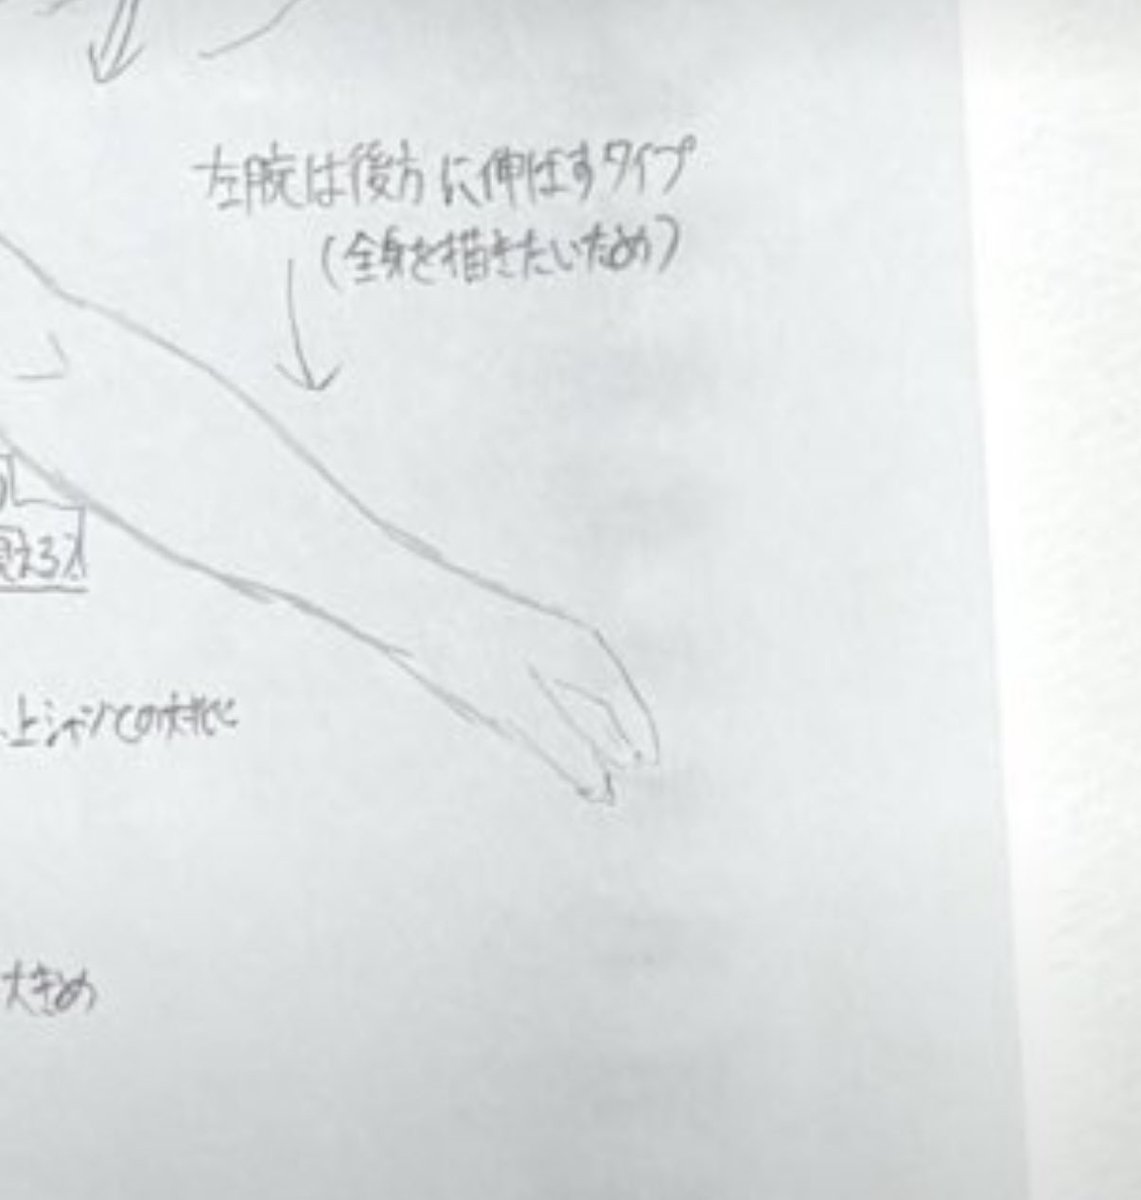 左腕は後方に伸ばすタイプ
(全身を描きたいため)
見える
上シャツとの対比
大きめ